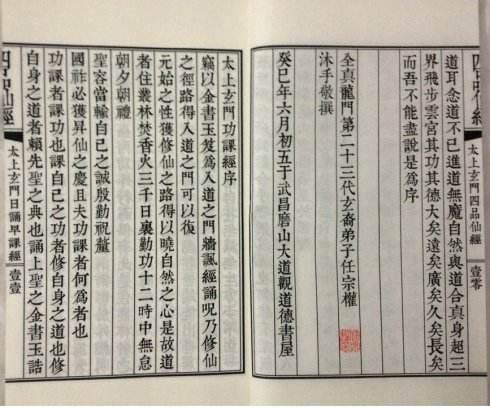 四品仙經
太上玄門四品仙經
壹零
道耳念道不已進道無魔自然與道合真身超三
界飛步雲宮其功其德大矣遠矣廣矣久矣長矣
而吾不能盡說是為序
全真龍門第二十三代玄裔弟子任宗權
沐手敬撰
癸巳年六月初五于武昌磨山大道觀道德書屋
太上玄門功課經序
竊以金書玉笈為入道之門牆諷經誦呪乃修仙
之徑路得入道之門可以復
元始之性獲修仙之路得以曉自然之心是故道
者住叢林焚香火三千日襄勤功十二時中無息
朝夕朝禮
聖容當輸自己之誠殷勤祝釐
國祚必獲昇仙之慶且夫功課者何為者也
功課者課功也課自己之功者修自身之道也修
自身之道者賴先聖之典也誦上聖之金書玉誥
四品仙經
太上玄門日誦早課經
壹壹